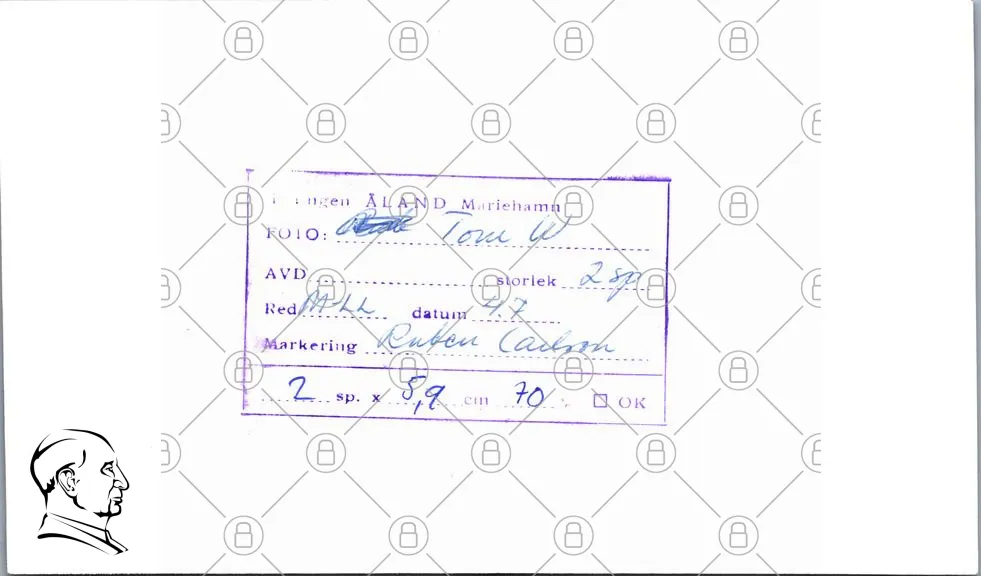 ÅLAND Mariehamn
FOTO: Tom W
AVD storlek 2 sp
Red M-LL datum 4.7
Markering Ruben Carlson
2 sp. x 8,9 cm 70 OK